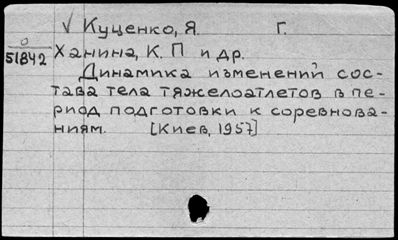 √ Куценко, Я. Г.
О
51842
Ханина, К. П и др.
Динамика изменений сос-
тава тела тяжелоатлетов в пе-
риод подготовки к соревнова-
ниям. [Киев, 1957]